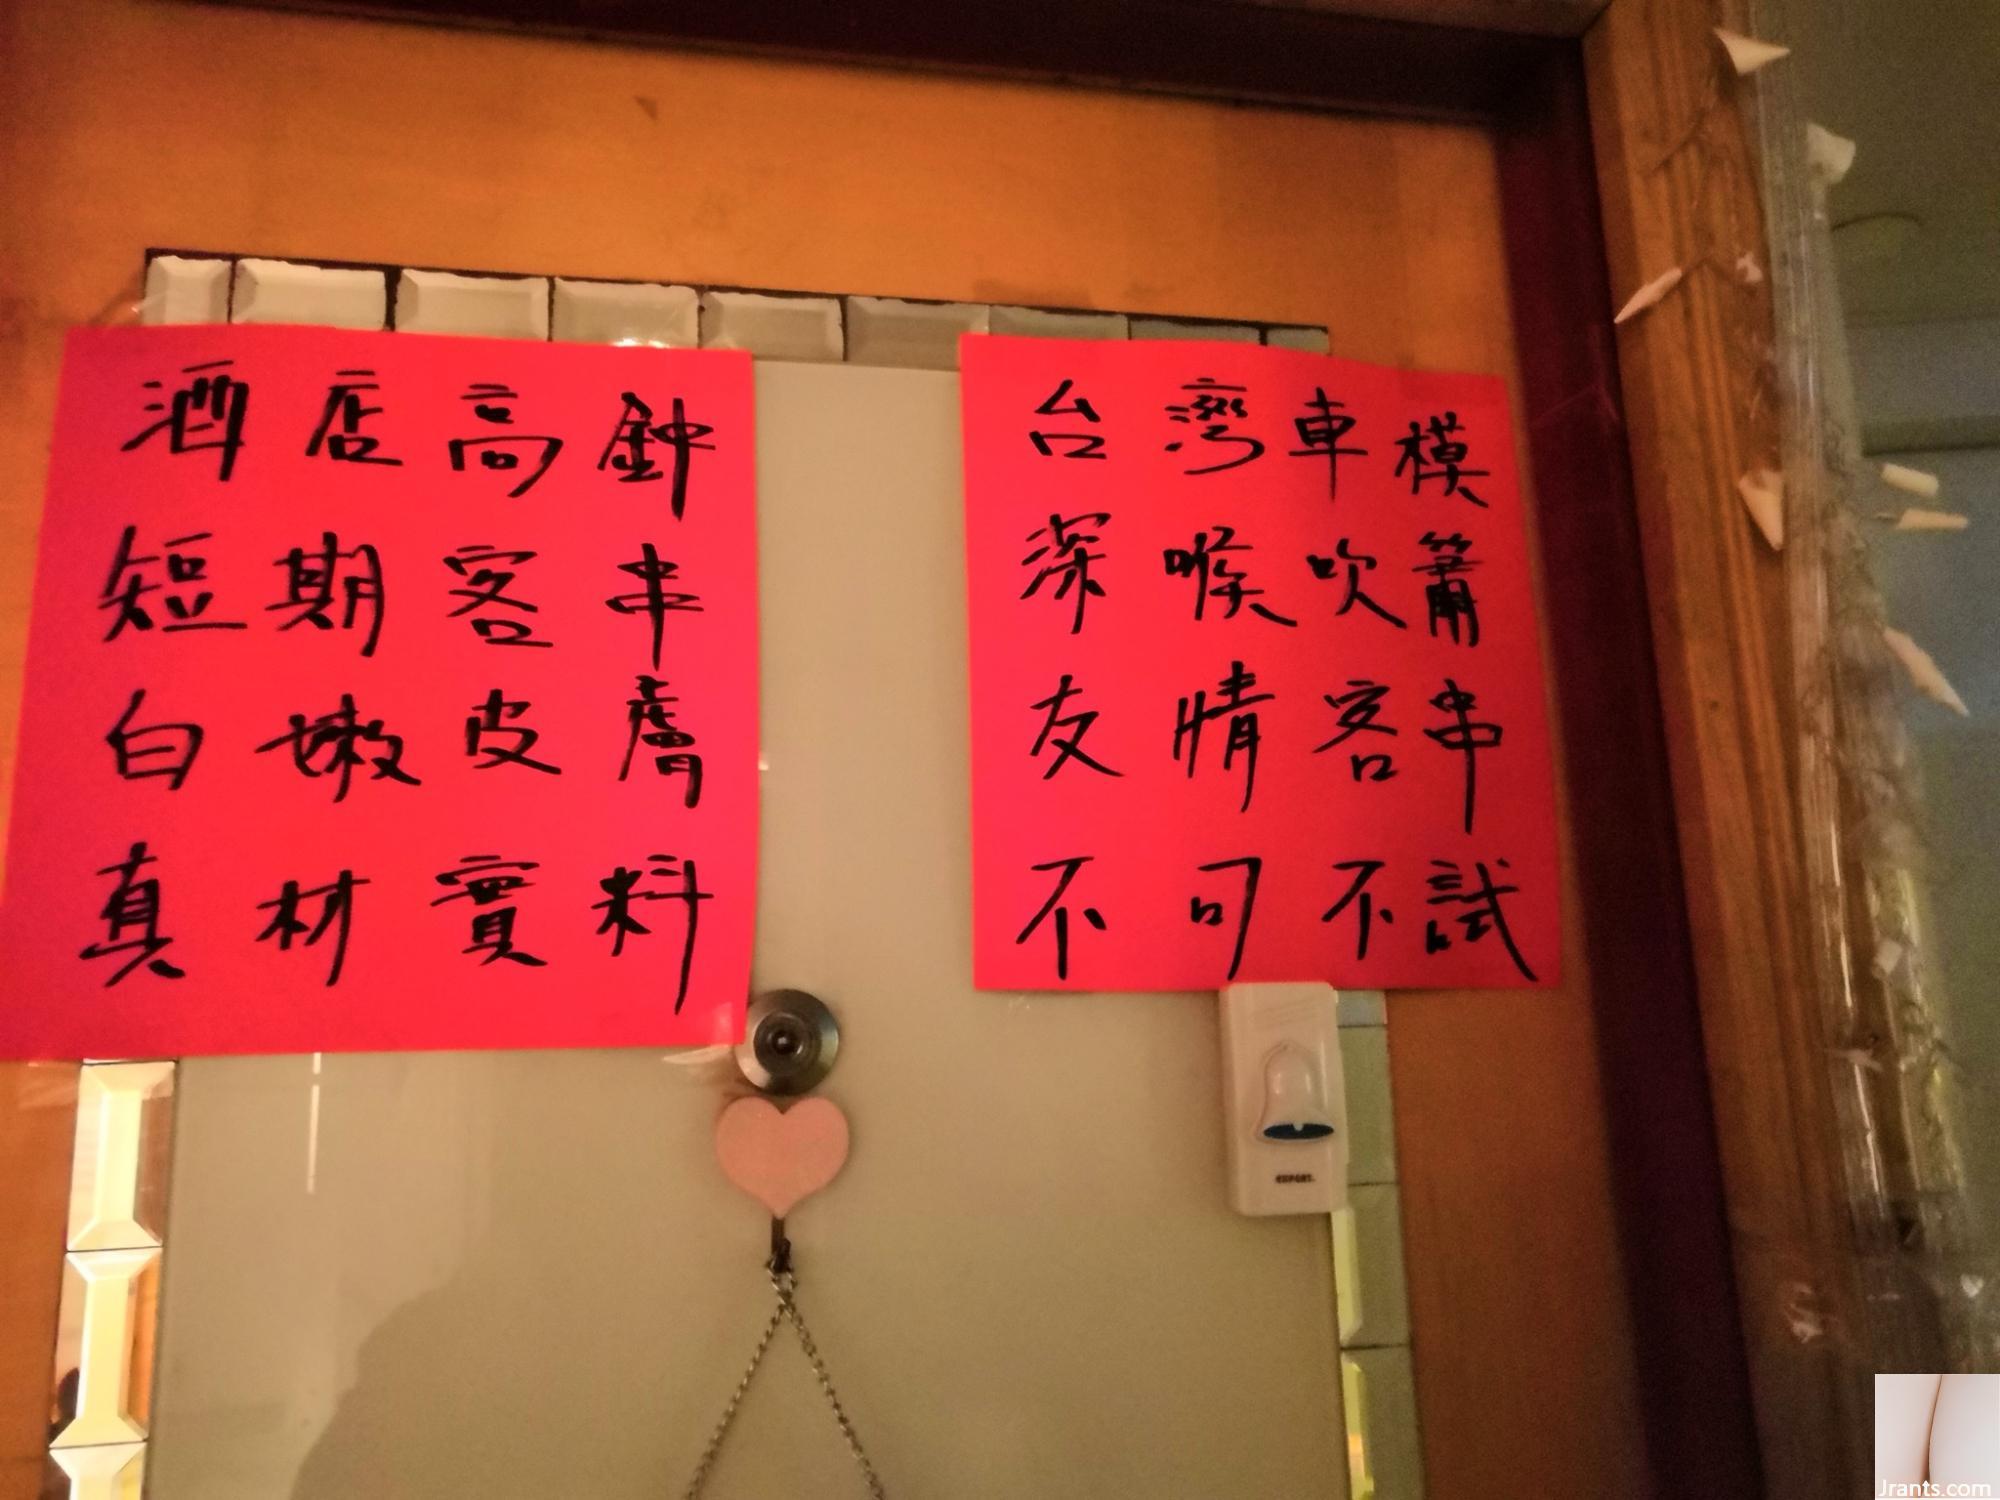 酒店高鈡
短期客串
白嫩皮膚
真材實料
台灣車模
深喉吹簫
友情客串
不可不試
Jrants.com